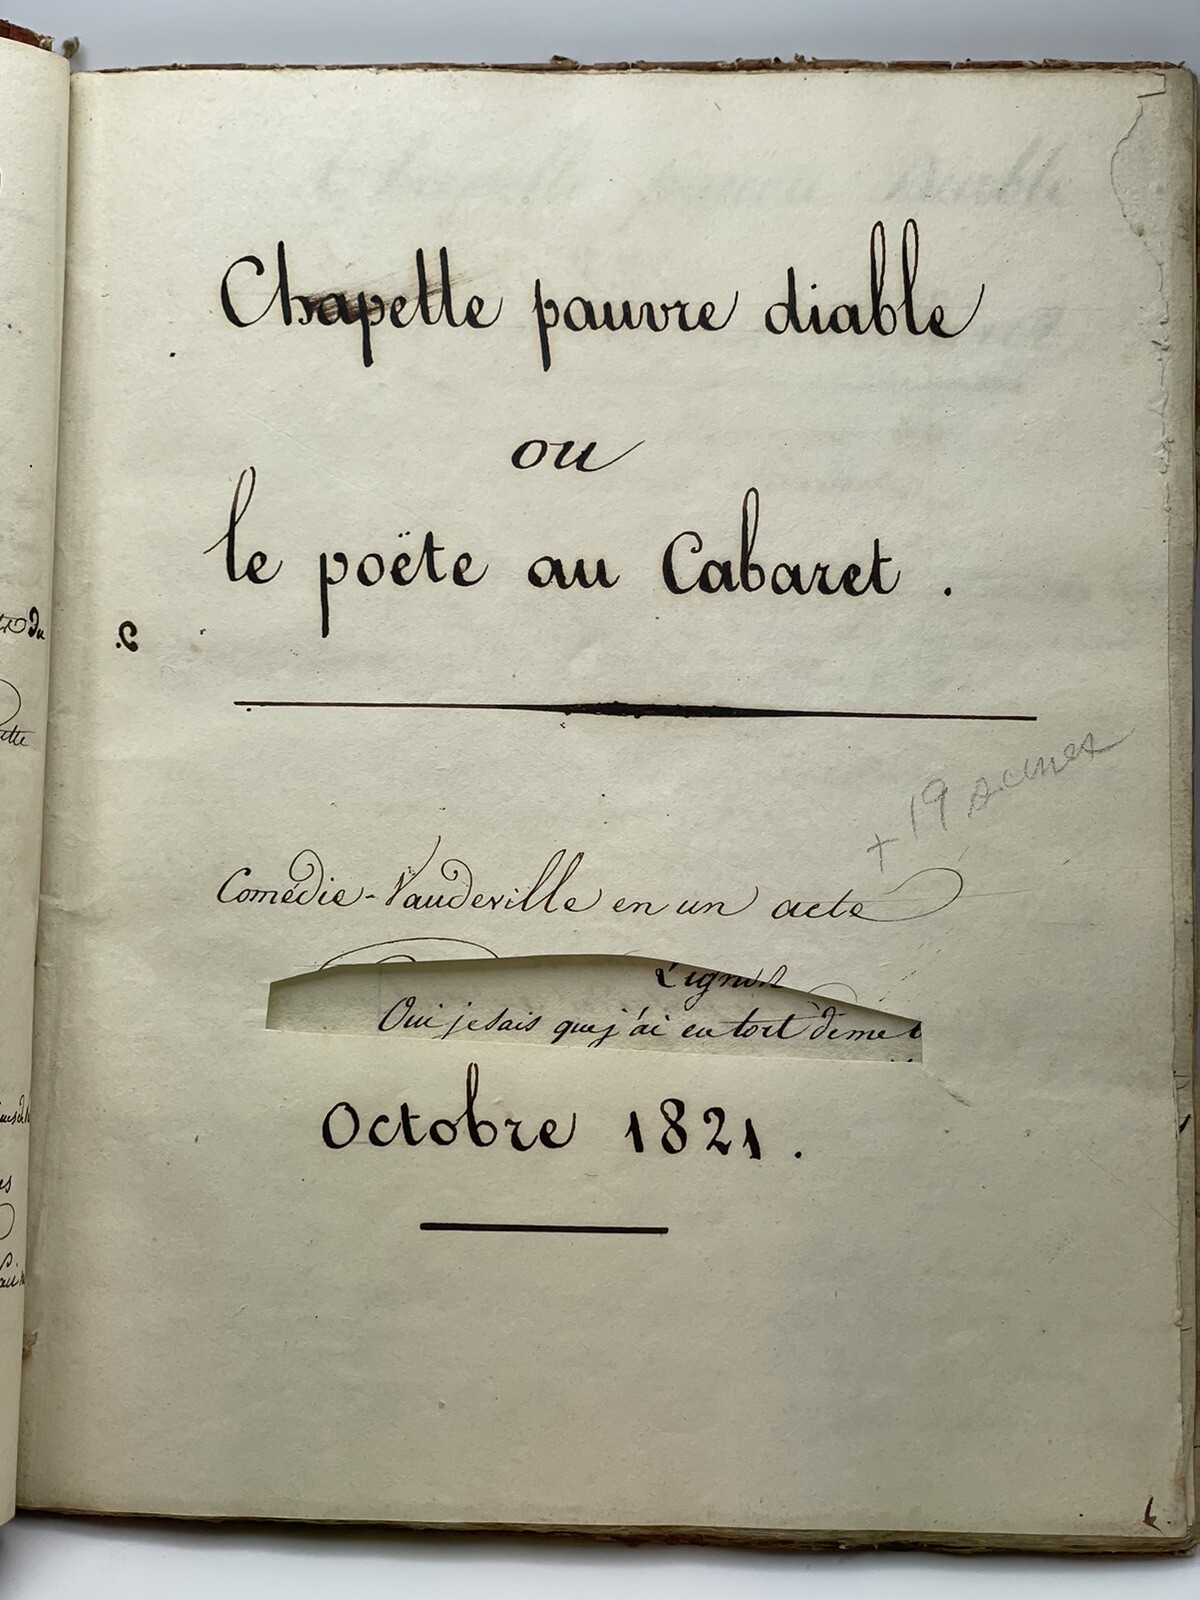 Chapelle pauvre diable
ou
le poëte au Cabaret .
+ 19 scenes
Comédie-Vaudeville en un acte
Lignon
Oui je sais que j'ai eu tort de me
Octobre 1821 .